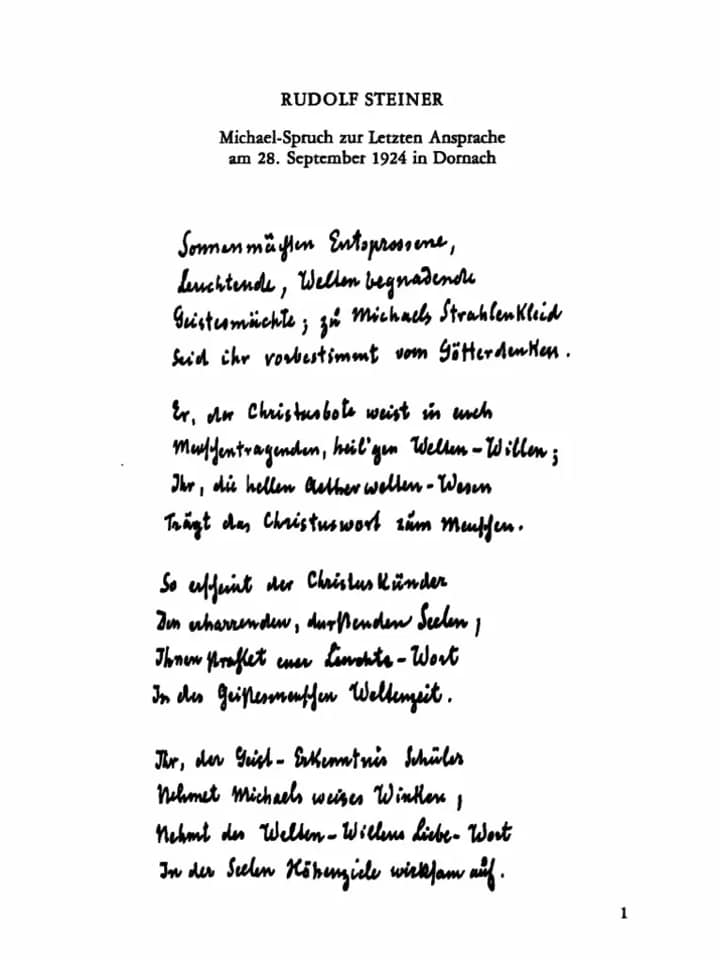 RUDOLF STEINER
Michael-Spruch zur Letzten Ansprache
am 28. September 1924 in Dornach
Sonnenmächten Entsprossene,
Leuchtende, Welten begnadende
Geistesmächte; zu Michaels Strahlenkleid
Seid ihr vorbestimmt vom Götterdenken.
Er, der Christusbote weist in euch
Menschentragenden, heil'gen Welten-Willen;
Ihr, die hellen Aetherwelten-Wesen
Trägt das Christuswort zum Menschen.
So erscheint der Christuskünder
Den erharrenden, durstenden Seelen;
Ihnen strahlet euer Leuchte-Wort
In des Geistesmenschen Weltenzeit.
Ihr, der Geist-Erkenntnis Schüler
Nehmet Michaels weises Winken,
Nehmt des Welten-Willens Liebe-Wort
In der Seelen Höhenziele wirksam auf.
1